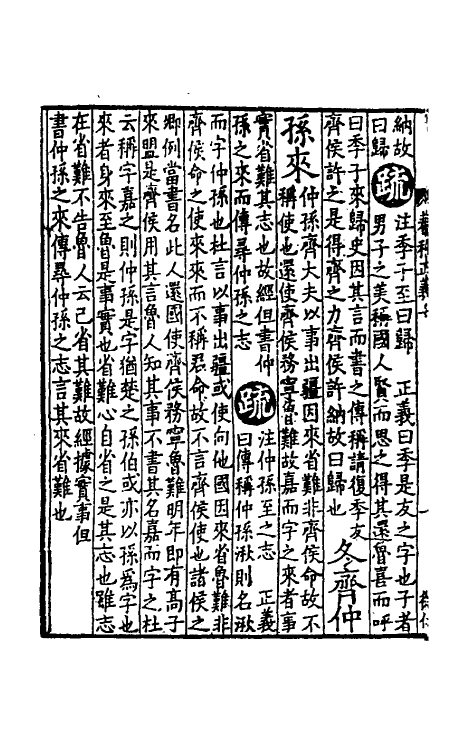 納故
曰歸
疏
注季子至曰歸　正義曰季是友之字也子者
男子之美稱國人賢而思之得其還魯喜而呼
曰季子來歸史因其言而書之傳稱請復季友
齊侯許之是得齊之力齊侯許納故曰歸也
冬齊仲
孫來
仲孫齊大夫以事出疆因來省難非齊侯命故不
稱使也還使齊侯務寧魯難故嘉而字之來者事
實省難其志也故經但書仲
孫之來而傳尋仲孫之志
疏
注仲孫至之志　正義
曰傳稱仲孫湫則名湫
而字仲孫也杜言以事出疆或使向他國因來省魯難非
齊侯命之使來來而不稱君命故不言齊侯使也諸侯之
卿例當書名此人還國使齊侯務寧魯難明年即有高子
來盟是齊侯用其言魯人知其事不書其名嘉而字之杜
云稱字嘉之則仲孫是字猶楚之孫伯或亦以孫為字也
來者身來至魯是事實也省難心自省之是其志也雖志
在省難不告魯人云己省其難故經據實事但
書仲孫之來傳尋仲孫之志言其來省難也